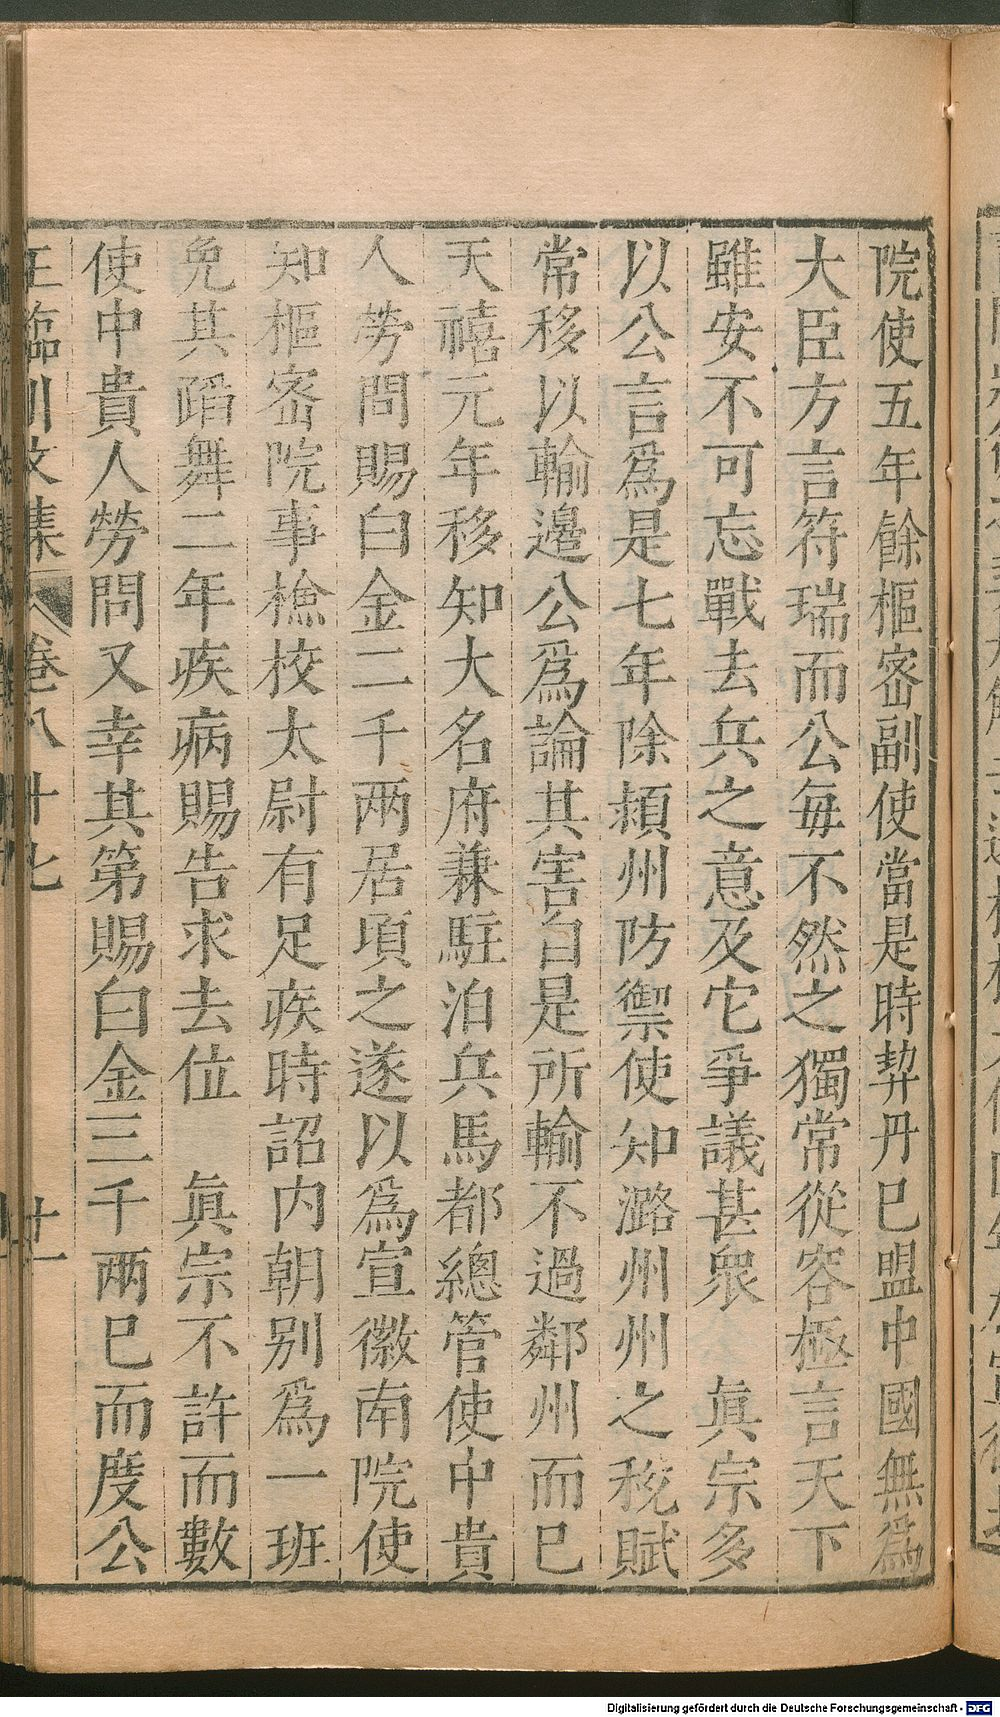 院使五年餘樞密副使當是時契丹已盟中國無爲
大臣方言符瑞而公每不然之獨常從容極言天下
雖安不可忘戰去兵之意及它爭議甚衆　眞宗多
以公言爲是七年除潁州防禦使知潞州州之稅賦
常移以輸邊公爲論其害自是所輸不過鄰州而已
天禧元年移知大名府兼駐泊兵馬都總管使中貴
人勞問賜白金二千兩居項之遂以爲宣徽南院使
知樞密院事檢校太尉有足疾時詔内朝别爲一班
免其蹈舞二年疾病賜告求去位　眞宗不許而數
使中貴人勞問又幸其第賜白金三千兩已而度公
王臨川文集　卷八十七　廿一
Digitalisierung gefördert durch die Deutsche Forschungsgemeinschaft - DFG